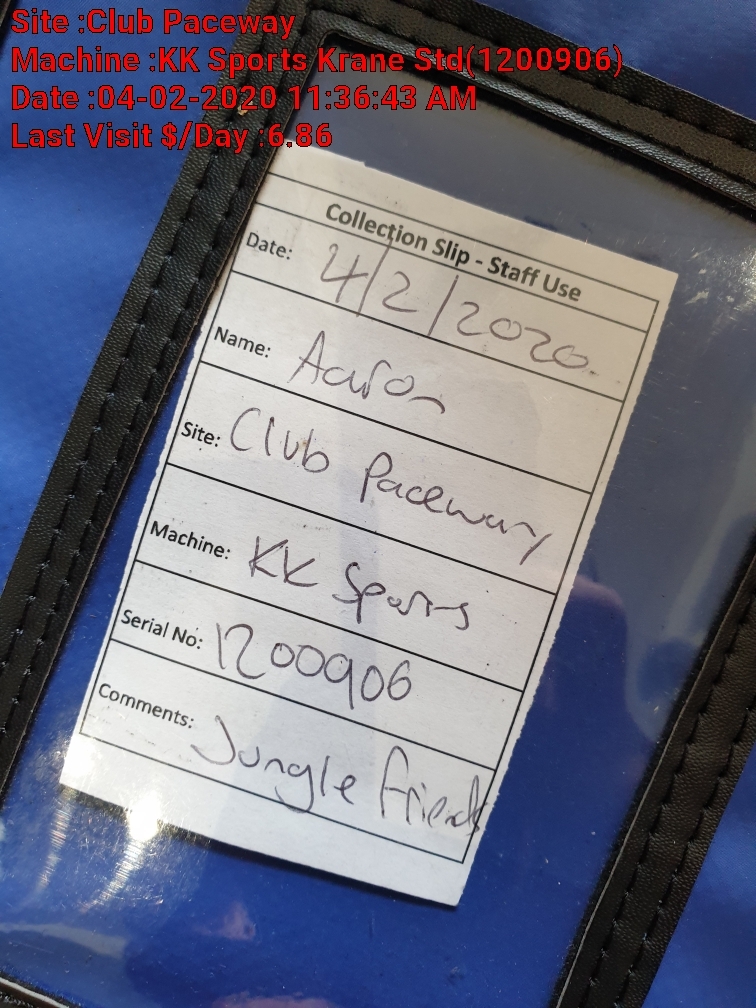 Site :Club Paceway
Machine :KK Sports Krane Std(1200906)
Date :04-02-2020 11:36:43 AM
Last Visit $/Day :6.86
Collection Slip - Staff Use
Date: 4/2/2020.
Name: Aaron
Site: Club Paceway
Machine: KK Sports
Serial No: 1200906
Comments: Jungle friends